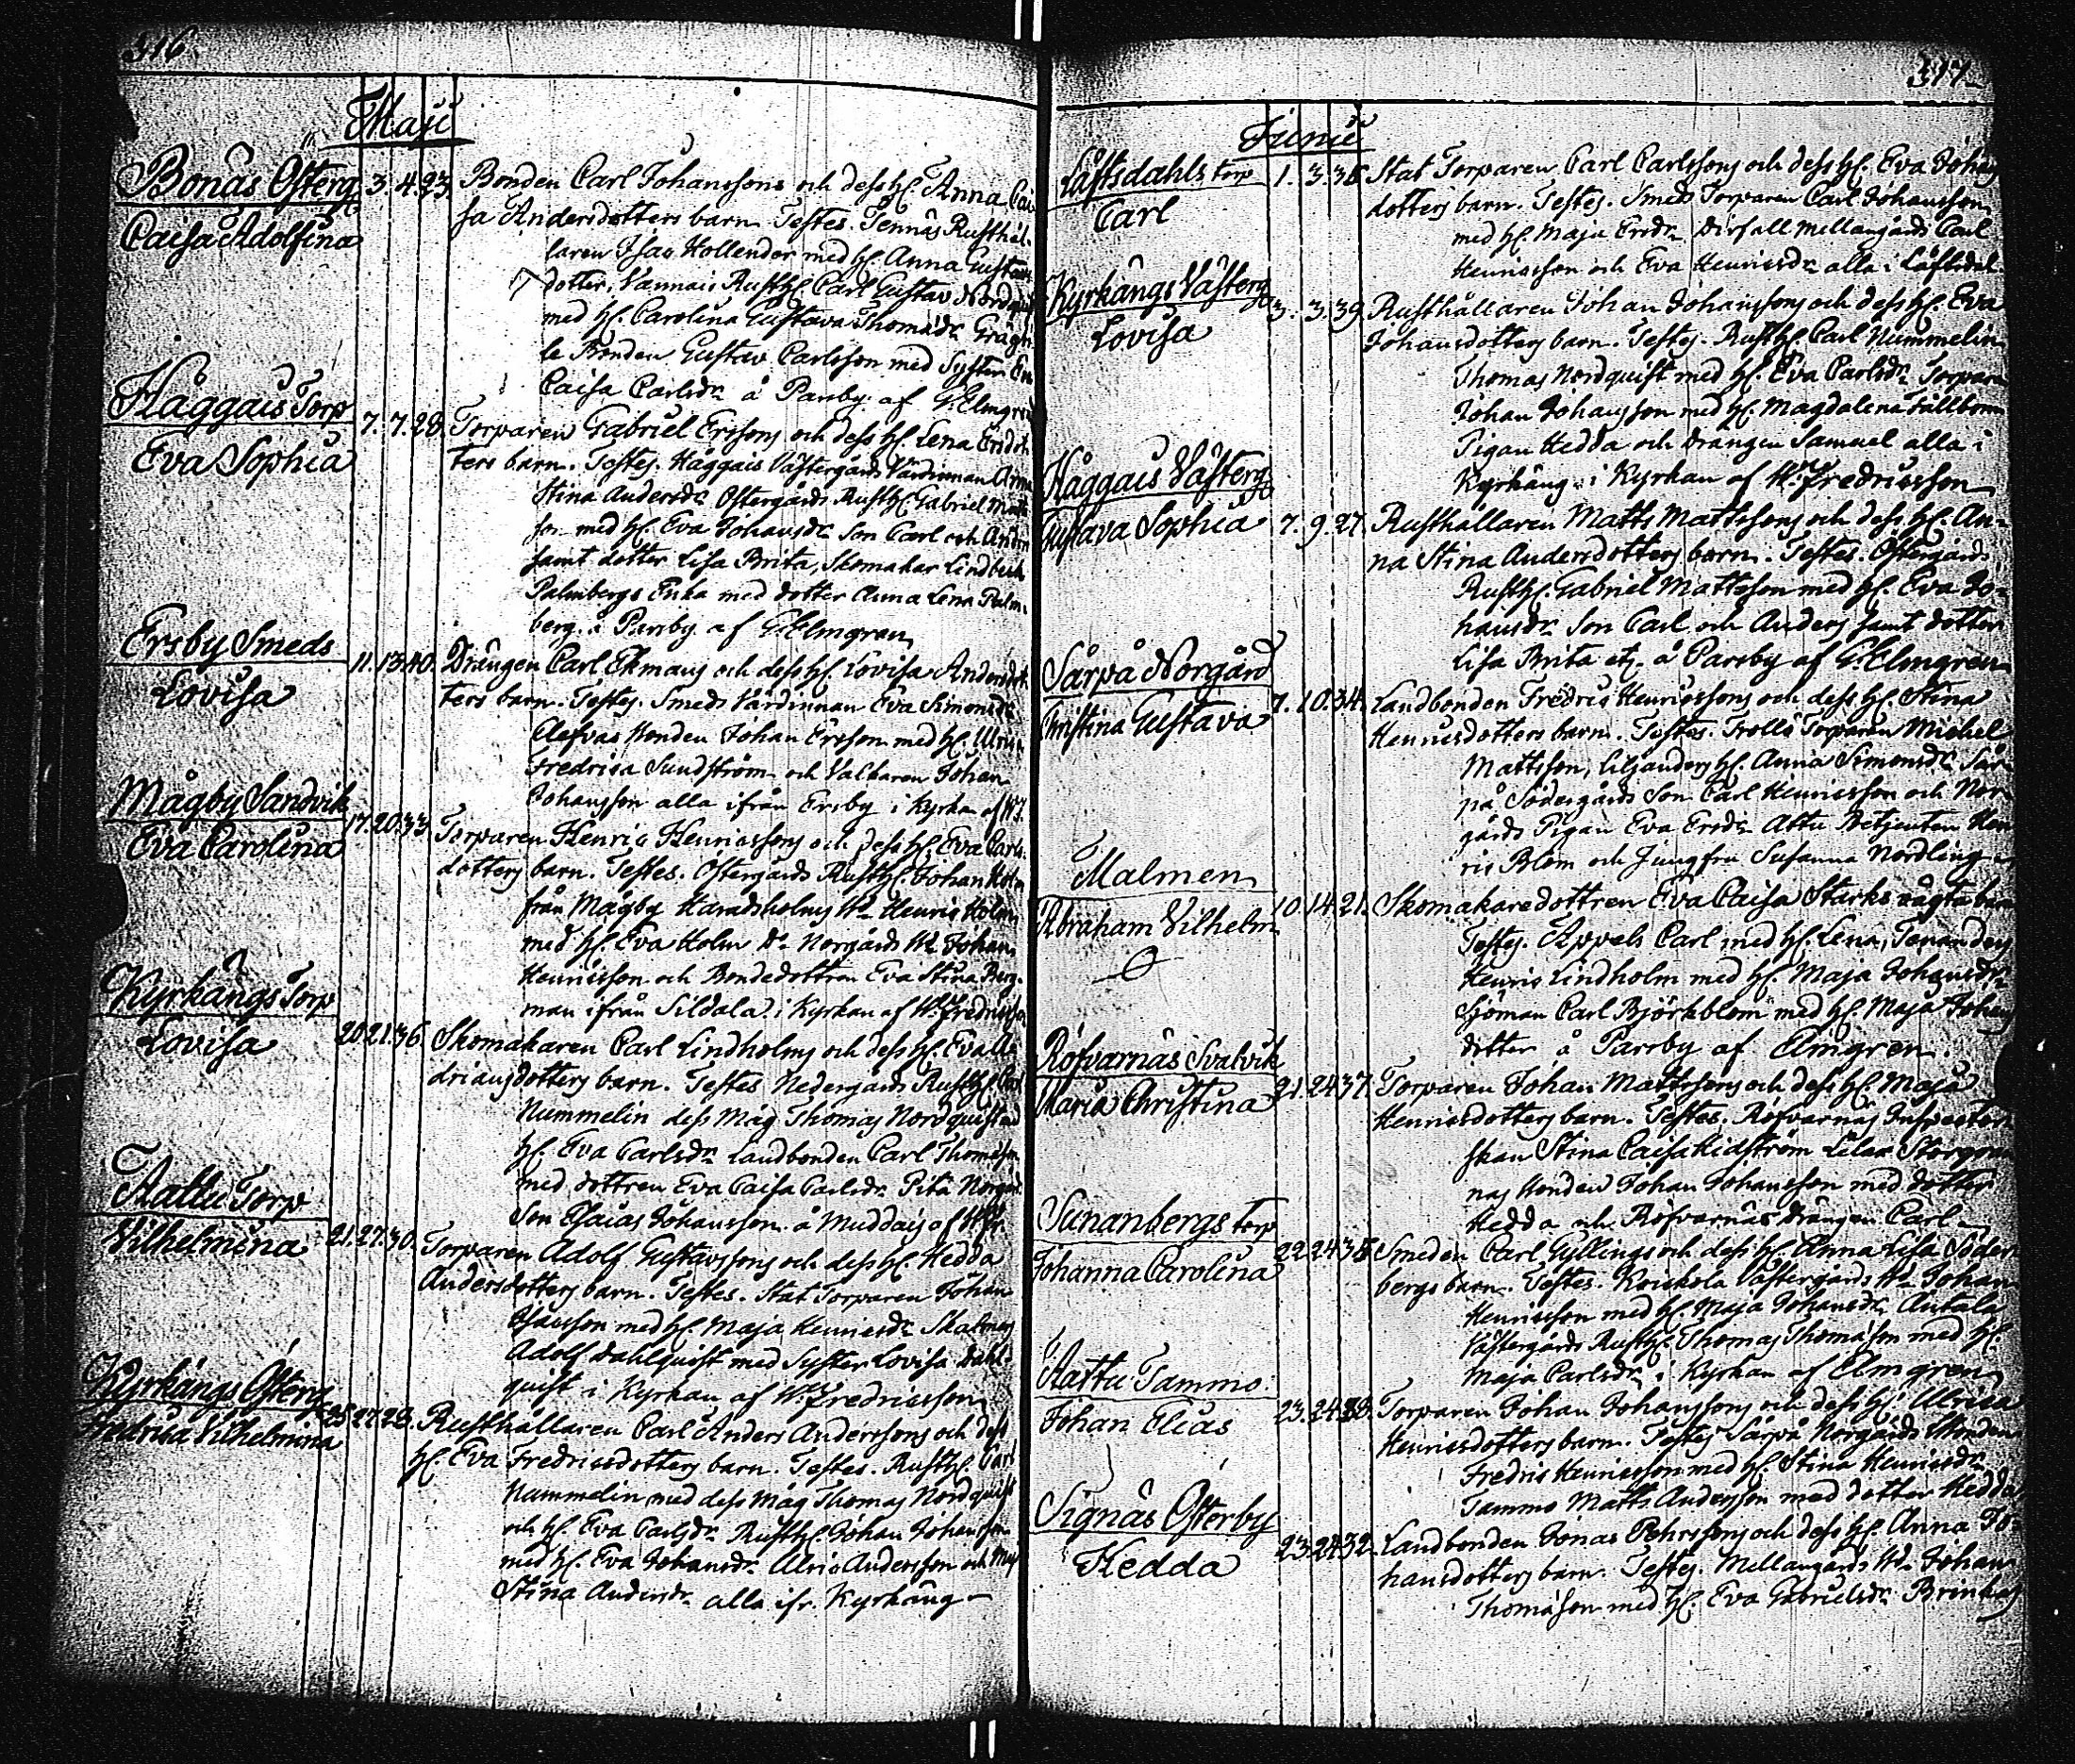 316
Maji
Bonäs Österg
Caisa Adolfina
3. 4. 23.
Bonden Carl Johanssons och dess H. Anna Cai
sa Andersdotters barn Testes. Tennäs Rusthål.
laren Isac Hollender med H. Anna Gustavs
dotter, Vannais Rusth. Carl Gustav Nordquist
med H. Carolina Gustava Thomsdr
le Bonden Gustav Carlsson med Syster
Caisa Carlsdr å Parsby af G. Elmgren
Häggais Torp
Eva Sophia
7. 7. 28.
Torparen Gabriel Erssons och dess H. Lena Ersdot
ters barn. Testes. Häggais Västergårds Värdinnan Anna
Stina Andersdr Östergårds Rusth. Gabriel Matts
son med H. Eva Johansdr Son Carl och Anders
samt dotter Lisa Brita, Skomakar Lindbeck
Palmbergs Enka med dotter Anna Lena Palm.
berg. å Parsby af G. Elmgren
Ersby Smeds
Lovisa
11. 13. 40.
Drängen Carl Ekmans och dess H. Lovisa Andersdot
ters barn. Testes. Smeds Värdinnan Eva Simonsdr
Bonden Johan Ersson med H. Ulrica
Fredrica Sundström och Valkaren Johan
Johansson alla ifrån Ersby i Kyrkan af
Mågby Sandvik
Eva Carolina
17. 20. 33.
Torparen Henric Henricssons och dess H. Eva Carls.
dotters barn. Testes. Östergårds Rusth. Johan Holm
från Mågby Haradsholms Wd Henric Holm
med H. Eva Holm Do Norgårds Wd Johan
Henricsson och Bondedottren Eva Stina Berg.
man ifrån Sildala i Kyrkan af W. Fredricsson
Kyrkängs Torp
Lovisa
20 21. 36.
Skomakaren Carl Lindholms och dess H. Eva A
driansdotters barn. Testes Nedergårds Rusth. Carl
Nummelin dess Måg Thomas Nordquist med
H. Eva Carlsdr Landbonden Carl Thomsson
med dottren Eva Caisa Carlsdr Pitä Norgård
Son Esaias Johansson å Muddais af W. Fr.
Aattu Torp
Vilhelmina
21. 27. 30.
Torparen Adolf Gustavssons och dess H. Hedda
Andersdotters barn. Testes. Stat Torparen Johan
Isacsson med H. Maja Henricsdr
Adolf Dahlquist med Syster Lovisa Dahl.
quist i Kyrkan af W. Fredricsson
Kyrkängs Österg
Fredrika Vilhelmina
25. 27. 28.
Rusthållaren Carl Anders Anderssons och dess
H. Eva Fredricsdotters barn. Testes. Rusth. Carl
Nummelin med dess Måg Thomas Nordquist
och H. Eva Carlsdr Rusth. Johan Johansson
med H. Eva Johansdr Ulric Andersson och Maj
Stina Andersdr alla ifr. Kyrkäng
317
Junii
Låftsdahls torp
Carl
1. 3. 35
Stat Torparen Carl Carlssons och dess H. Eva Johans
dotters barn. Testes. Smeds Torparen Carl Johansson
med H. Maja Ersdr Dirfall Mellangårds Carl
Henricsson och Eva Henricsdr alla i Låftsdal
Kyrkängs Västerg
Lovisa
3. 3. 39.
Rusthållaren Johan Johanssons och dess H. Eva
Johansdotters barn. Testes. Rusth. Carl Nummelin
Thomas Nordquist med H. Eva Carlsdr Torparen
Johan Johansson med H. Magdalena Fällbom
Pigan Hedda och Drängen Samuel alla i
Kyrkäng i Kyrkan af W. Fredricsson
Häggais Västerg
Gustava Sophia
7. 9. 27.
Rusthållaren Matts Mattssons och dess H. An-
na Stina Andersdotters barn. Testes. Östergårds
Rusth. Gabriel Mattsson med H. Eva Jo-
hansdr Son Carl och Anders samt dotter
Lisa Brita etz. å Parsby af G. Elmgren
Särpä Norgård
Christina Gustava
7. 10. 34.
Landbonden Fredric Henricssons och dess H. Stina
Henricsdotters barn. Testes. Trollö Torparen Michel
Mattsson, Liljanders H. Anna Simonsdr Sär-
pä Södergårds Son Carl Henricsson och Nor-
gårds Pigan Eva Ersdr Attu Betjenten Hen
ric Blom och Jungfru Susanna Nordling
Malmen
Abraham Vilhelm
10. 14. 21.
Skomakaredottren Eva Caisa Starks oägta barn
Testes. Appels Carl med H. Lena, Tenanders
Henric Lindholm med H. Maja Johansdr
Sjöman Carl Björkblom med H. Maja Johans
dotter å Parsby af Elmgren.
Röfvarnäs Svalvik
Maria Christina
21. 24 37.
Torparen Johan Mattssons och dess H. Maja
Henricsdotters barn. Testes. Röfvarnäs Inspector
skan Stina Caisa Hidström Lilax Storgår
nas Bonden Johan Johansson med dotter
Hedda och Röfvarnäs Drängen Carl
Sunanbergs torp
Johanna Carolina
22. 24 35
Smeden Carl Gyllings och dess H. Anna Lisa Söder
bergs barn. Testes. Krickola Västergårds Wd Johan
Henricsson med H. Maja Johansdr Antala
Västergårds Rusth. Thomas Thomsson med H.
Maja Carlsdr i Kyrkan af Elmgren
Aattu Tammo
Johan Elias
23. 24. 28.
Torparen Johan Johanssons och dess H. Ulrica
Henricsdotters barn. Testes Särpä Norgårds Bonden
Fredric Henricsson med H. Stina Henricsdr
Tammo Matts Andersson med dotter Hedda
Signäs Österby
Hedda
23. 24 32.
Landbonden Jonas Pehrssons och dess H. Anna Jo-
hansdotters barn. Testes. Mellangårds Wd Johan
Thomsson med H. Eva Gabrielsdr